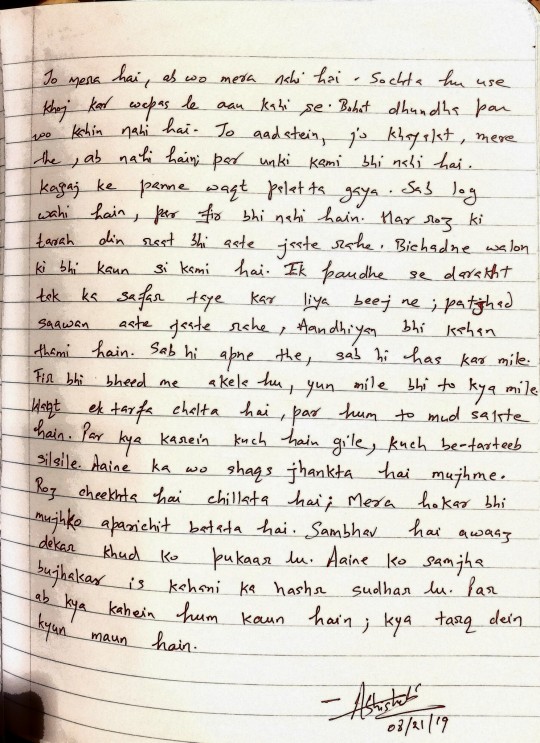 Jo mera hai, ab wo mera nahi hai. Sochta hu use
khoj kar wapas le aau kahi se. Bohat dhundha par
wo kahin nahi hai. Jo aadatein, jo khayalat, mere
the, ab nahi hain; par unki kami bhi nahi hai.
Kagaj ke panne waqt palatta gaya. Sab log
wahi hain, par fir bhi nahi hain. Har roz ki
tarah din raat bhi aate jaate rahe. Bichadne walon
ki bhi kaun si kami hai. Ek paudhe se darakht
tak ka safar taye kar liya beej ne; patjhad
saawan aate jaate rahe, Aandhiyan bhi kahan
thami hain. Sab hi apne the, sab hi has kar mile.
Fir bhi bheed me akela hu, yun mile bhi to kya mile.
Waqt ek tarfa chalta hai, par hum to mud sakte
hain. Par kya karein kuch hain gile, kuch be-tarteeb
silsile. Aaine ka wo shaqs jhankta hai mujhme.
Roz cheekhta hai chillata hai; Mera hokar bhi
mujhko aparichit batata hai. Sambhav hai awaaz
dekar khud ko pukaar lu. Aaine ko samjha
bujhakar is kahani ka hashr sudhar lu. Par
ab kya kahein hum kaun hain; kya tarq dein
kyun maun hain.
03/21/19